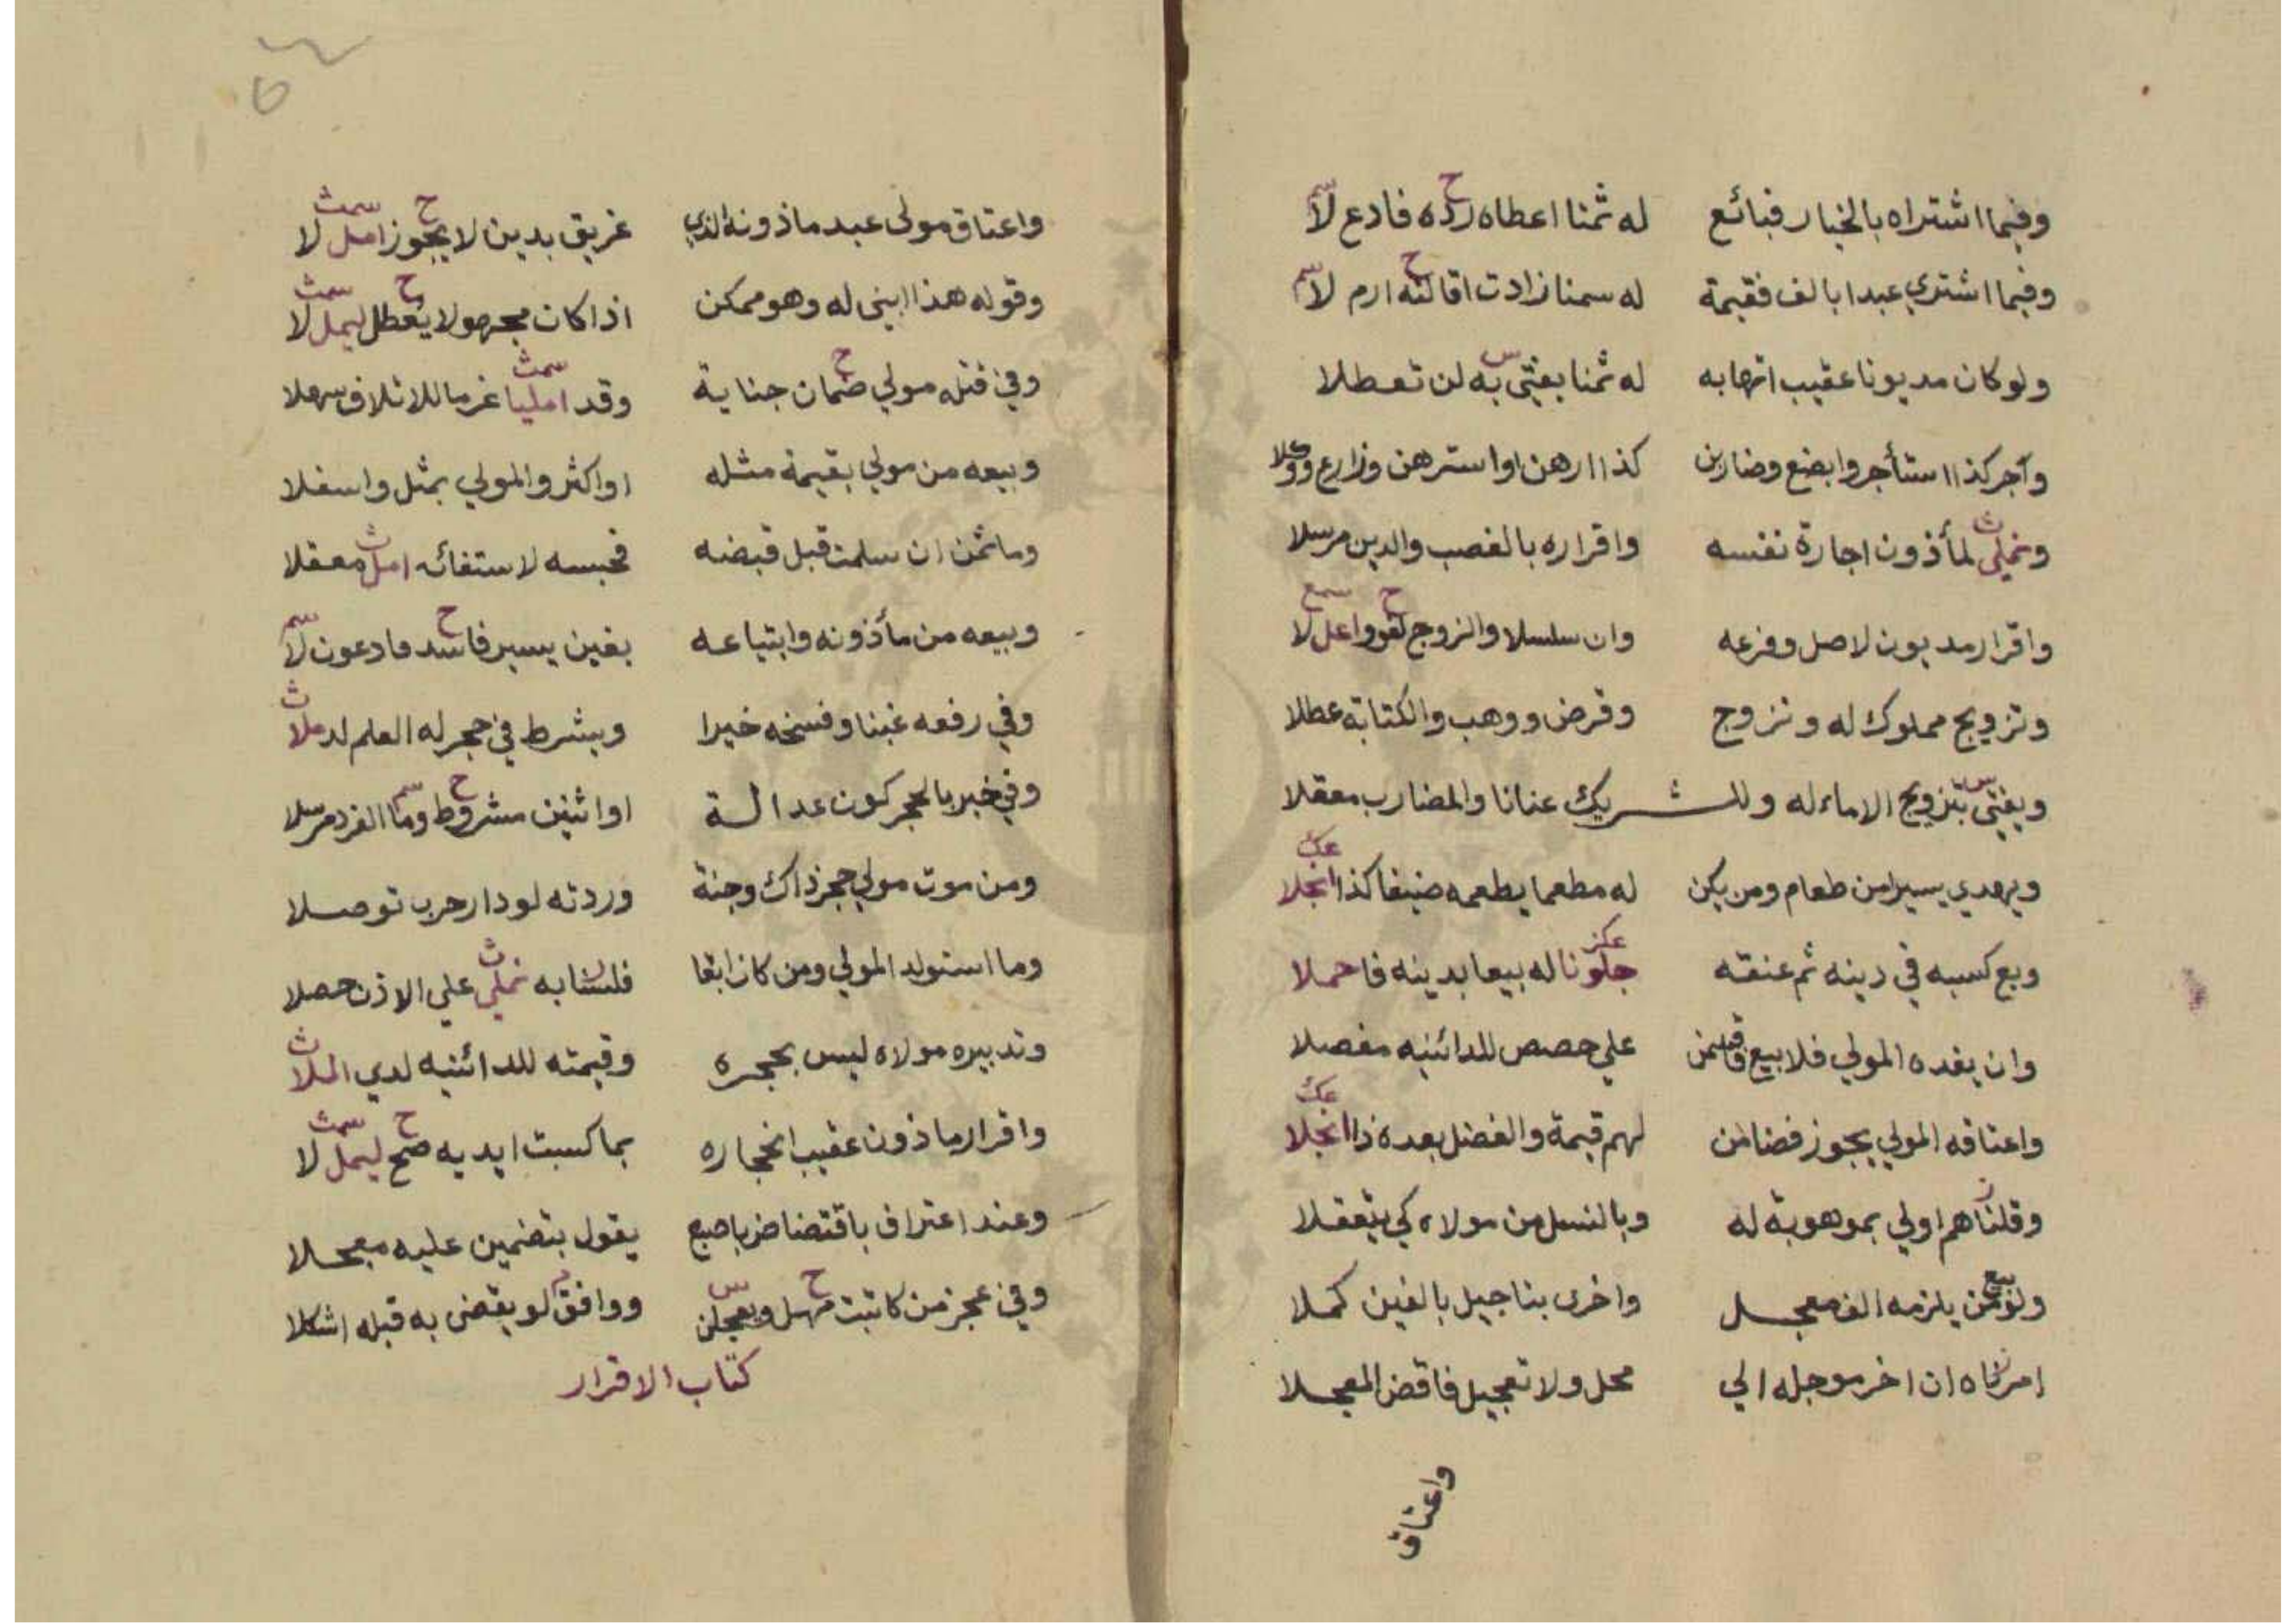 وفيما اشتراه بالخيار فبائع له ثمنا اعطاه رده فادع لا
وفيما اشتري عبدا بالف فقيمة له سمنا زادت اقالته ارم لا
ولو كان مديونا عقيب اتهابه له ثمنا يفتي به لن تعطلا
وآجر كذا استأجر وابضع وضاربن كذا ارهن او استرهن وزارع ووكلا
ونملي لمأذون اجارة نفسه واقراره بالغصب والدين مرسلا
واقرار مديون لاصل وفرعه وان سلسلا والزوج لغو واعل لا
وتزويج مملوك له وتزوج وقرض ووهب والكتابة عطلا
ويفتي بتزويج الاماء له وللشريك عنانا والمضارب معقلا
ويهدي يسيرا من طعام ومن يكن له مطعما يطعمه ضيفا كذا انجلا
وبع كسبه في دينه ثم عنقه جلونا له بيعا بدينه فاحملا
وان يفده المولي فلا بيع فاقسمن علي حصص للدائنيه مفصلا
واعتاقه المولي يجوز فضامن لهم قيمة والفضل بعده ذا انجلا
وقلنا هم اولي بموهوبة له وبالنسل من مولاه كي يتعقلا
ولو بيع من يلزمه الف معجل واخرى بتاجيل بالفين كملا
امرناه ان اخر موجله الي محل ولا تعجيل فاقض المعجلا
واعتاق
واعتاق مولى عبد ماذونه الذي غريق بدين لا يجوز امل لا
وقوله هذا ابني له وهو ممكن اذا كان مجهولا يعطل ليمل لا
وفي قتله مولي ضمان جناية وقد امليا غرما للاتلاف سهلا
وبيعه من مولي بقيمة مثله او اكثر والمولي بمثل واسفلا
وما ثمن ان سلمت قبل قبضه فحبسه لاستفائه امل معقلا
وبيعه من مأذونه وابتياعه بغبن يسير فاسد مادعون لا
وفي رفعه غبنا وفسخه خيرا ويشرط في حجر له العلم لد ملا
وفي خبر بالحجر كون عدالة او اثنين مشروط وما الفرد مرسلا
ومن موت مولي حجر ذاك وجنة وردته لو دار حرب توصلا
وما استولد المولي ومن كان ابقا فلسنا به نملي علي الاذن حصلا
وتدبيره مولاه ليس بحجره وقيمته للدائنيه لدي الملا
واقرار ماذون عقيب انحجاره بما كسبت ايديه صح ليمل لا
وعند اعتراف باقتضاض باصبع يقول بتضمين عليه معجلا
وفي عجز من كاتبت مهل ويعجلن ووافق لو يقضى به قبله اشكلا
كتاب الاقرار